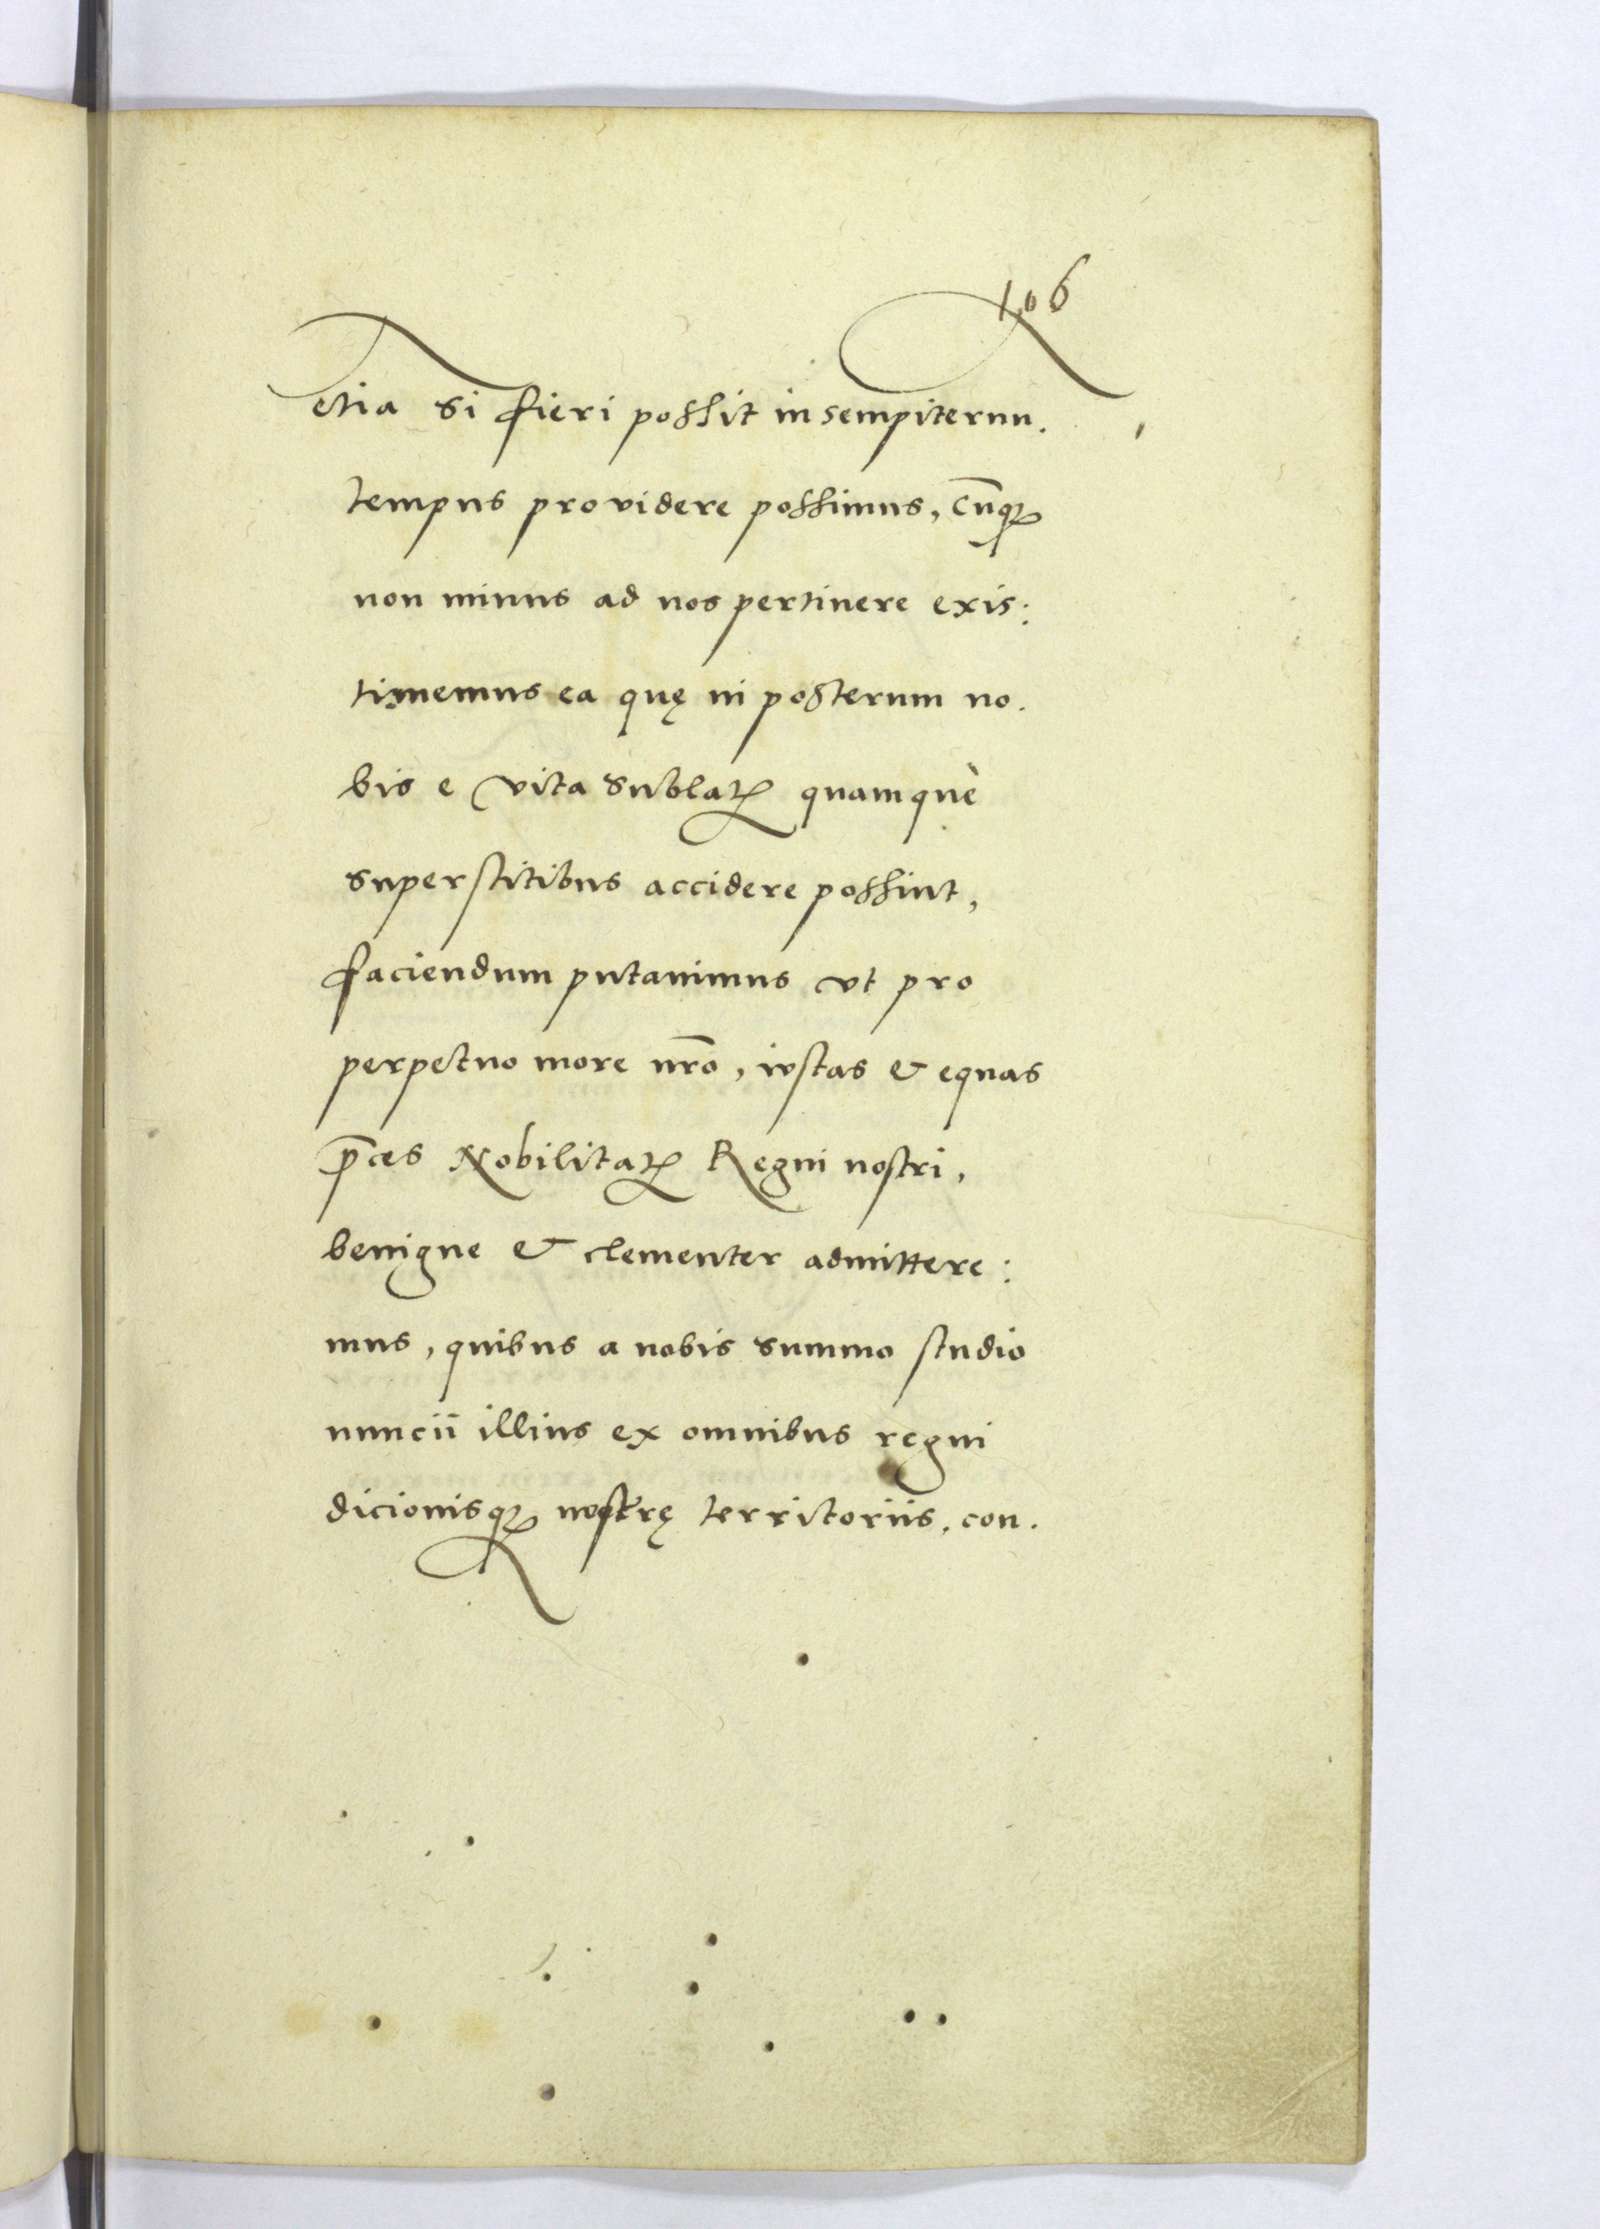 106
etia si fieri possit in sempiternu.
tempus providere possimus, cūqꝫ
non minus ad nos pertinere exis:
timemus ea quę in posterum no.
bis e vita sublatꝫ quamquè
superstitibus accidere possint,
faciendum putavimus vt pro
perpetuo more nr̄o, iustas & equas
p̄ces Nobilitatꝫ Regni nostri,
benigne & clementer admittere:
mus, quibus a nobis summo studio
nuncii illius ex omnibus regni
dicionisqꝫ nostrę territoriis, con.